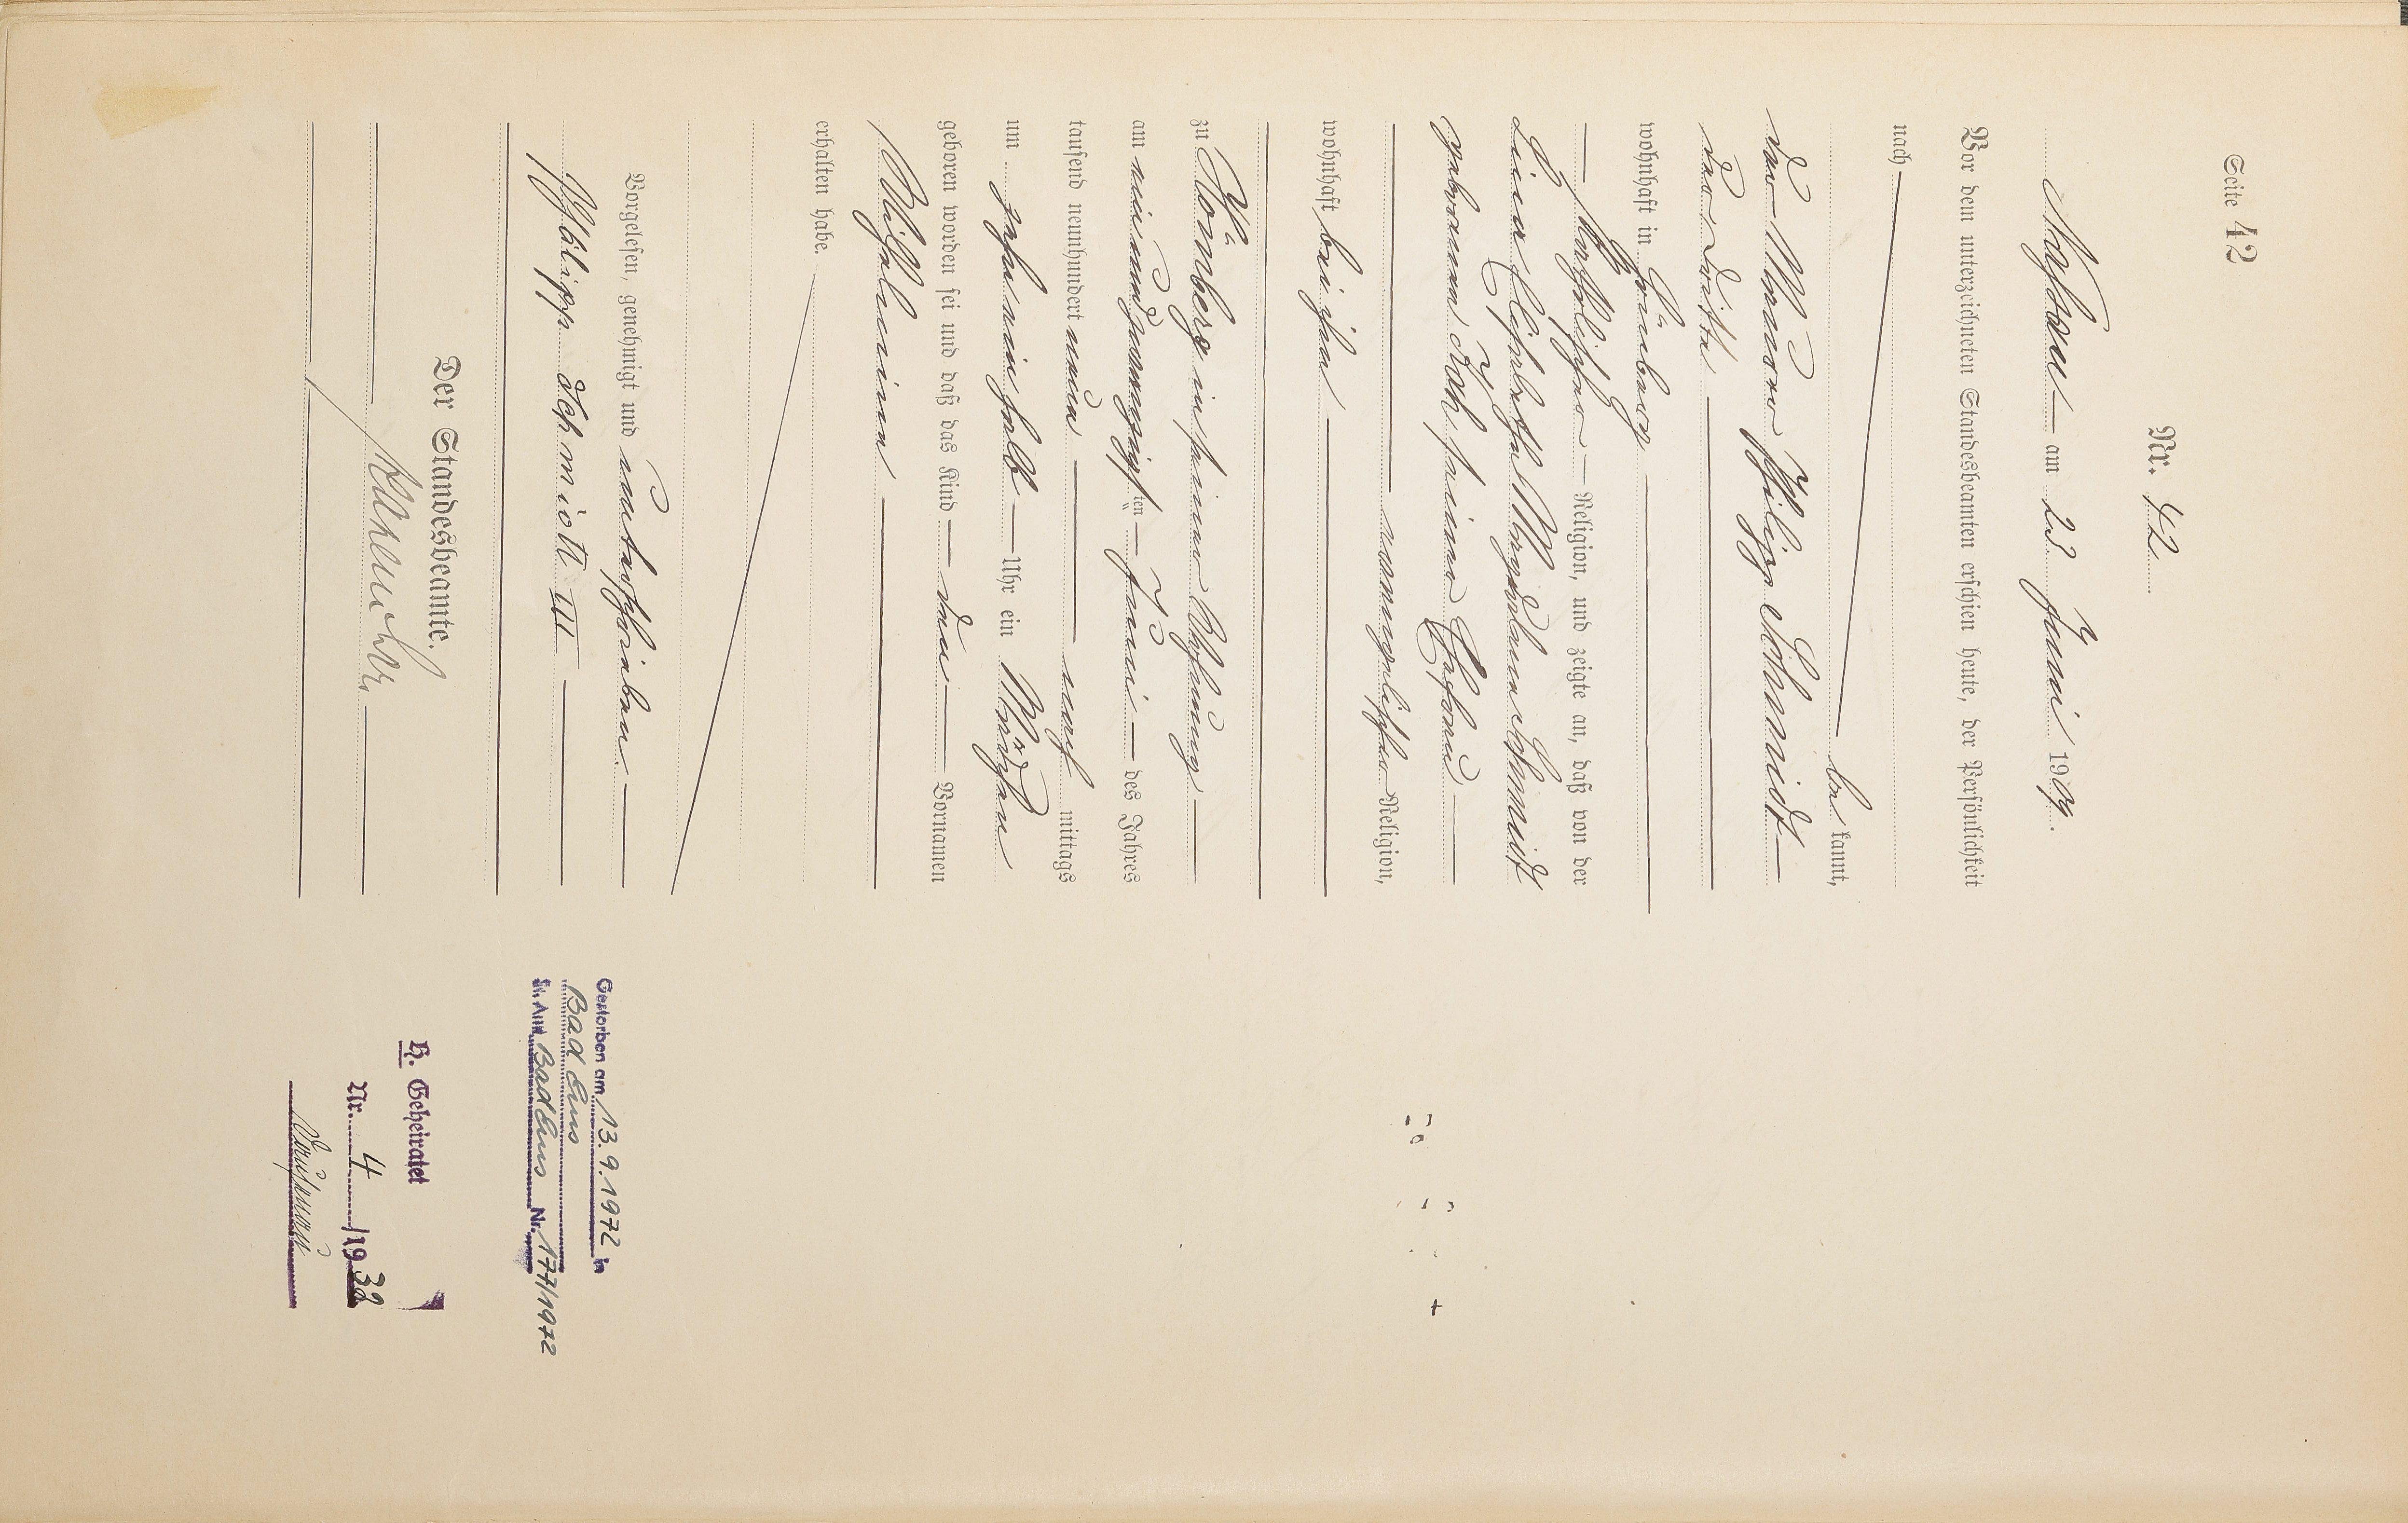 Seite 42
Nr. 42
Nassau am 23. Juni 1909.
Vor dem unterzeichneten Standesbeamten erschien heute, der Persönlichkeit
nach
be kannt,
der Maurer Philipp Schmidt
der Dritte
wohnhaft in
katholischer Religion, und zeigte an, daß von der
Lina Elisabetha Magdalena Schmidt
geborenen Koch, seiner Ehefrau
evangelischer Religion,
wohnhaft bei ihm
zu Homberg in seiner Wohnung
am einundzwanzigsten Juni des Jahres
tausend neunhundert neun nach mittags
um zehn ein halb Uhr ein Mädchen
geboren worden sei und daß das Kind den Vornamen
Wilhelmina
erhalten habe.
Vorgelesen, genehmigt und unterschrieben
Philipp Schmidt III
Der Standesbeamte.
Gestorben am 13.9.1972 in
Bad Ems
St. Amt Bad Ems Nr. 177/1972
H. Geheiratet
Nr. 4 /1932